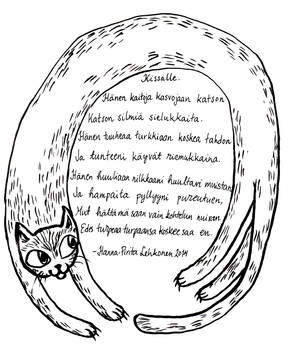 Kissalle.
Hänen kaitoja kasvojaan katson
Katson silmiä sielukkaita.
Hänen tuuheaa turkkiaan koskea tahdon
Ja tunteeni käyvät riemukkaina.
Hänen huuliaan nilkkaani huultavi muistan
Ja hampaita pyllyyni pureutuen,
Mut häntä mä saan vain kohtelun nuivan
Edes turpeaa turpaansa koskee saa en.
-Hanna-Pirita Lehkonen 2014